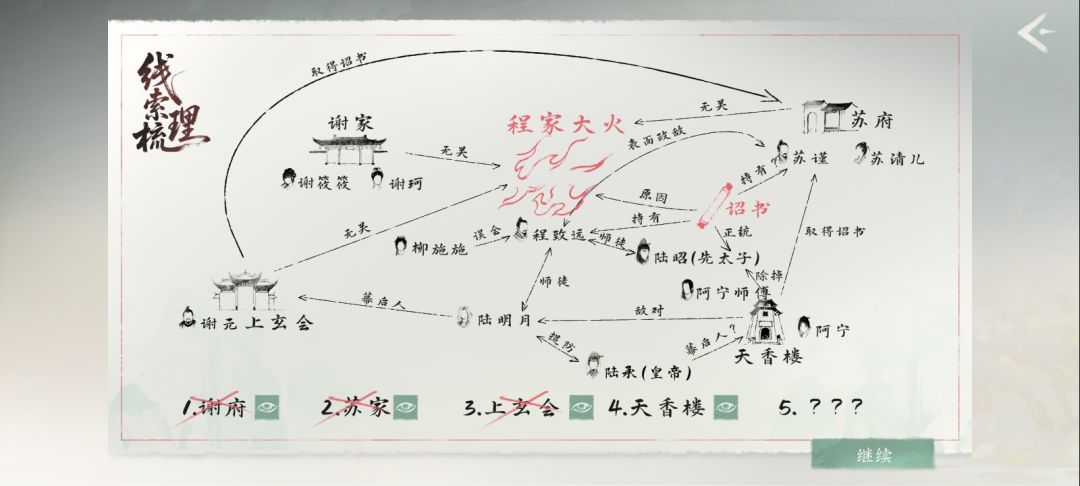 线索梳理
取得诏书
谢家
谢筱筱
谢珂
无关
程家大火
表面政敌
无关
苏府
苏谨
苏清儿
持有
原因
诏书
持有
正统
取得诏书
无关
柳施施
误会
程致远
师徒
陆昭(先太子)
除掉
阿宁师傅
师徒
谢元
上玄会
幕后人
陆明月
敌对
天香楼
阿宁
提防
陆承(皇帝)
幕后人?
1.谢府
2.苏家
3.上玄会
4.天香楼
5.???
继续